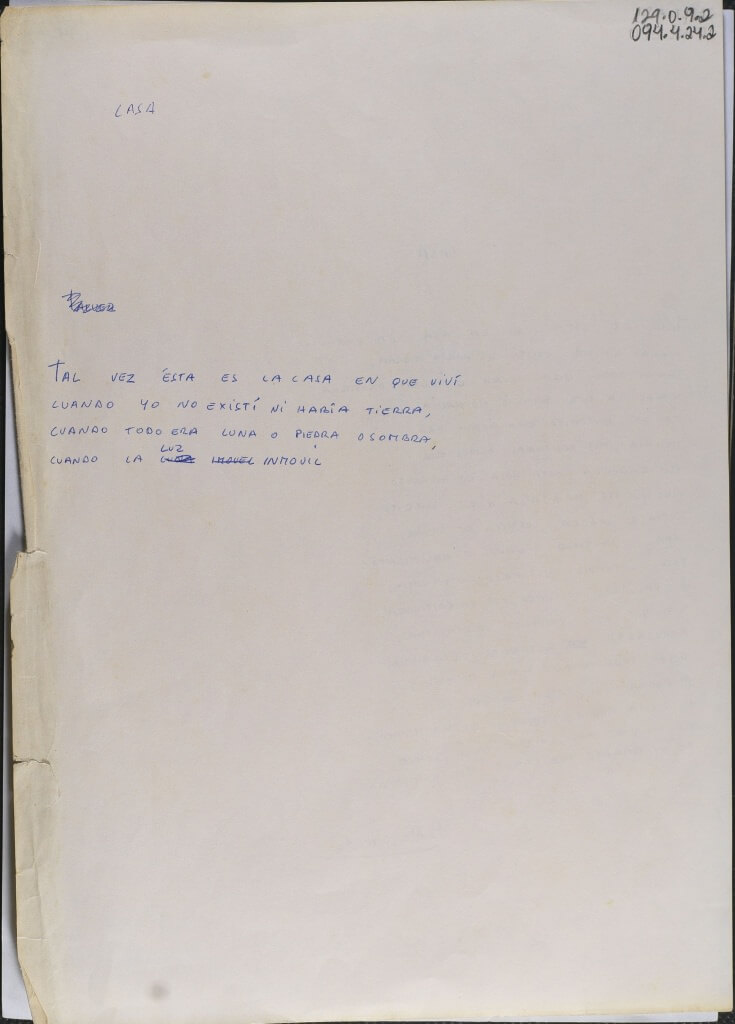 129.0.9.2
094.4.24.2
CASA
TAL VEZ ÉSTA ES LA CASA EN QUE VIVÍ
CUANDO YO NO EXISTÍ NI HABÍA TIERRA,
CUANDO TODO ERA LUNA O PIEDRA O SOMBRA,
CUANDO LA LUZ INMOVIL